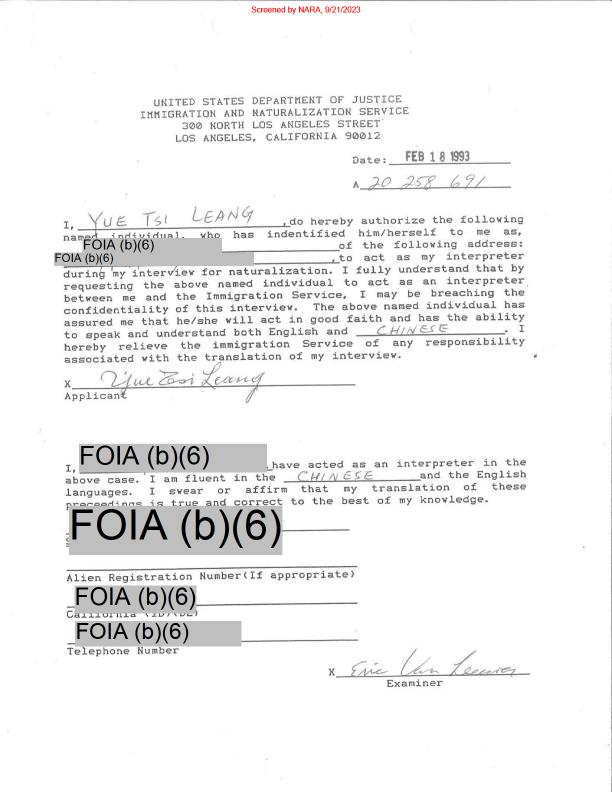 Screened by NARA, 9/21/2023
UNITED STATES DEPARTMENT OF JUSTICE
IMMIGRATION AND NATURALIZATION SERVICE
300 NORTH LOS ANGELES STREET
LOS ANGELES, CALIFORNIA 90012
Date: FEB 18 1993
A 20 258 691
I, YUE TSI LEANG ,do hereby authorize the following
named individual, who has indentified him/herself to me as,
FOIA (b)(6) of the following address:
FOIA (b)(6) ,to act as my interpreter
during my interview for naturalization. I fully understand that by
requesting the above named individual to act as an interpreter
between me and the Immigration Service, I may be breaching the
confidentiality of this interview. The above named individual has
assured me that he/she will act in good faith and has the ability
to speak and understand both English and CHINESE . I
hereby relieve the immigration Service of any responsibility
associated with the translation of my interview.
X Yue Tsi Leang
Applicant
I, FOIA (b)(6) have acted as an interpreter in the
above case. I am fluent in the CHINESE and the English
languages. I swear or affirm that my translation of these
proceedings is true and correct to the best of my knowledge.
FOIA (b)(6)
Alien Registration Number(If appropriate)
FOIA (b)(6)
California (ID)(DL)
FOIA (b)(6)
Telephone Number
X Eric Van Leeuwen
Examiner